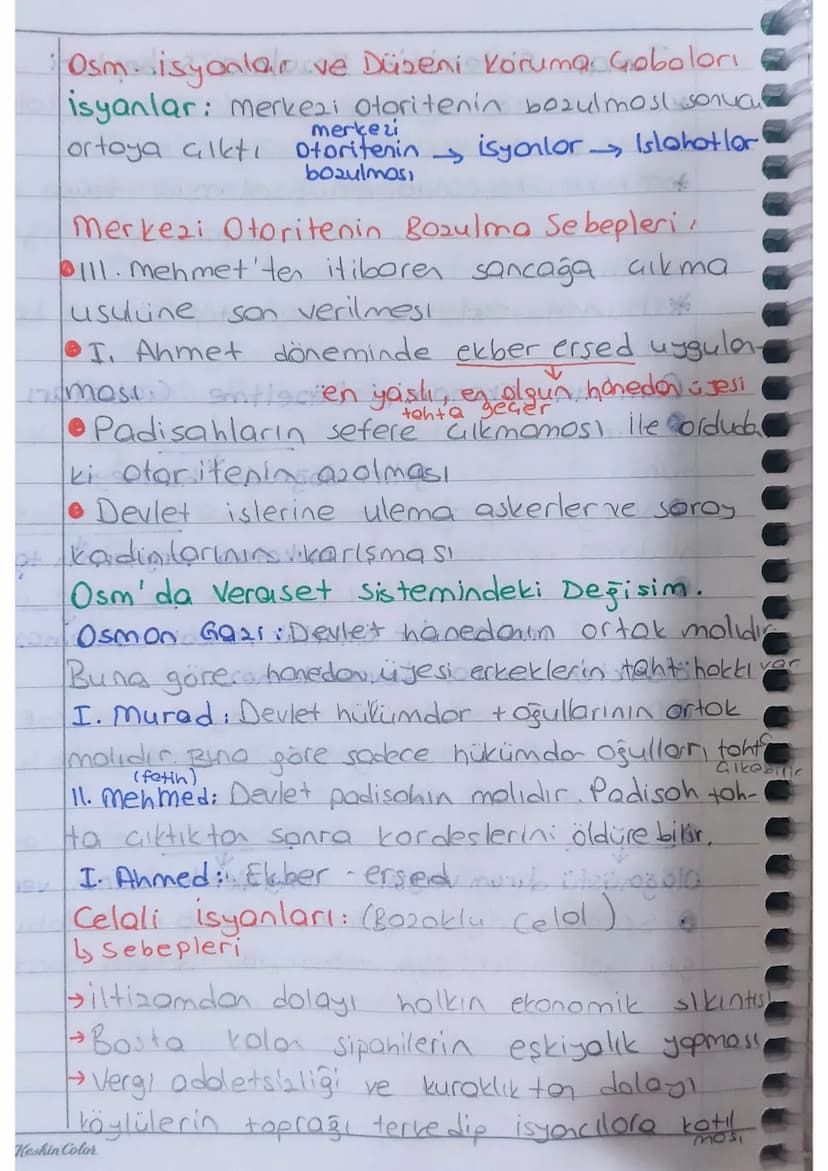 Osm. isyanlar ve Düzeni Koruma Çabaları
İsyanlar: merkezi otoritenin bozulması sonucu
ortaya çıktı merkezi otoritenin bozulması → isyanlar → Islahatlar
Merkezi Otoritenin Bozulma Sebepleri:
• III. Mehmet'ten itibaren sancağa çıkma
usulüne son verilmesi
• I. Ahmet döneminde ekber erşed uygulan-
ması en yaşlı, en olgun hanedan üyesi
tahta geçer
• Padişahların sefere çıkmaması ile orduda
ki otoritenin azalması
• Devlet işlerine ulema askerler ve saray
kadınlarının karışması
Osm'da Veraset Sistemindeki Değişim.
Osman Gazi: Devlet hanedanın ortak malıdır
Buna göre hanedan üyesi erkeklerin taht hakkı var
I. Murad: Devlet hükümdar + oğullarının ortak
malıdır. Buna göre sadece hükümdar oğulları taht
çıkabilir
(fatih)
II. Mehmed: Devlet padişahın malıdır. Padişah tah-
ta çıktıktan sonra kardeşlerini öldürebilir.
I. Ahmed: Ekber - erşed
Celali İsyanları: (Bozoklu Celal)
↳ Sebepleri
→ iltizamdan dolayı halkın ekonomik sıkıntısı
→ Boşta kalan sipahilerin eşkiyalık yapması
→ Vergi adaletsizliği ve kuraklıktan dolayı
köylülerin toprağı terkedip isyancılara katıl
ması
Keskin Color